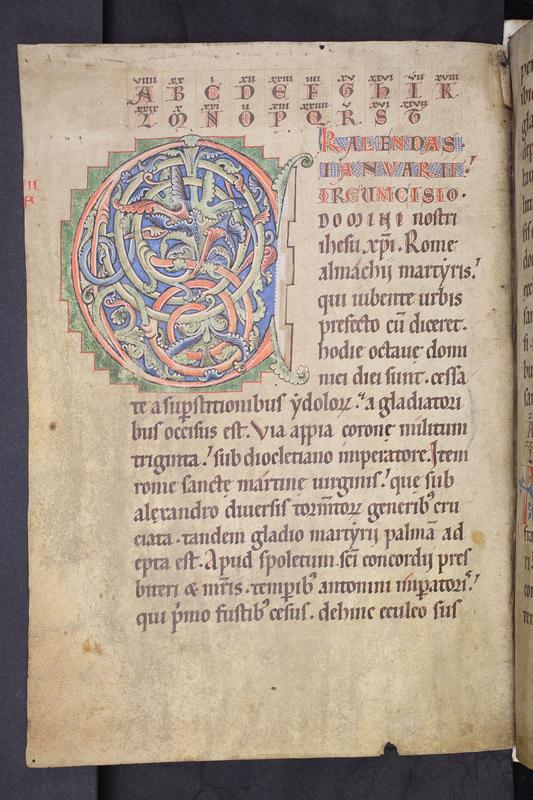 viiii xx i xii xxiii iiii xv xxvi vii xviii
A B C D E F G H I K
xxix x xxi ii xiii xxiiii v xvi xxvii
L M N O P Q R S T
KALENDAS.
IANUARII.
C IRCUMCISIO.
DOMINI nostri
ihesu xp̄i. Rome
almachij martyris.
qui iubente urbis
prefecto cū diceret.
hodie octaue domi
nici diei sunt. cessa
te a sup̄stitionibus ẏdoloꝝ. a gladiatori
bus occisus est. Via appia corone militum
triginta. sub diocletiano imperatore. Item
rome sancte martine uirginis. que sub
alexandro diuersis torm̄toꝝ generibꝰ cru
ciata. tandem gladio martyrij palmā ad
epta est. Apud spoletum. sc̄i concordij pres
biteri & mr̄is. temp̄ibꝰ antonini imp̄atorꝭ.
qui p̄mo fustibꝰ cesus. dehinc eculeo sus